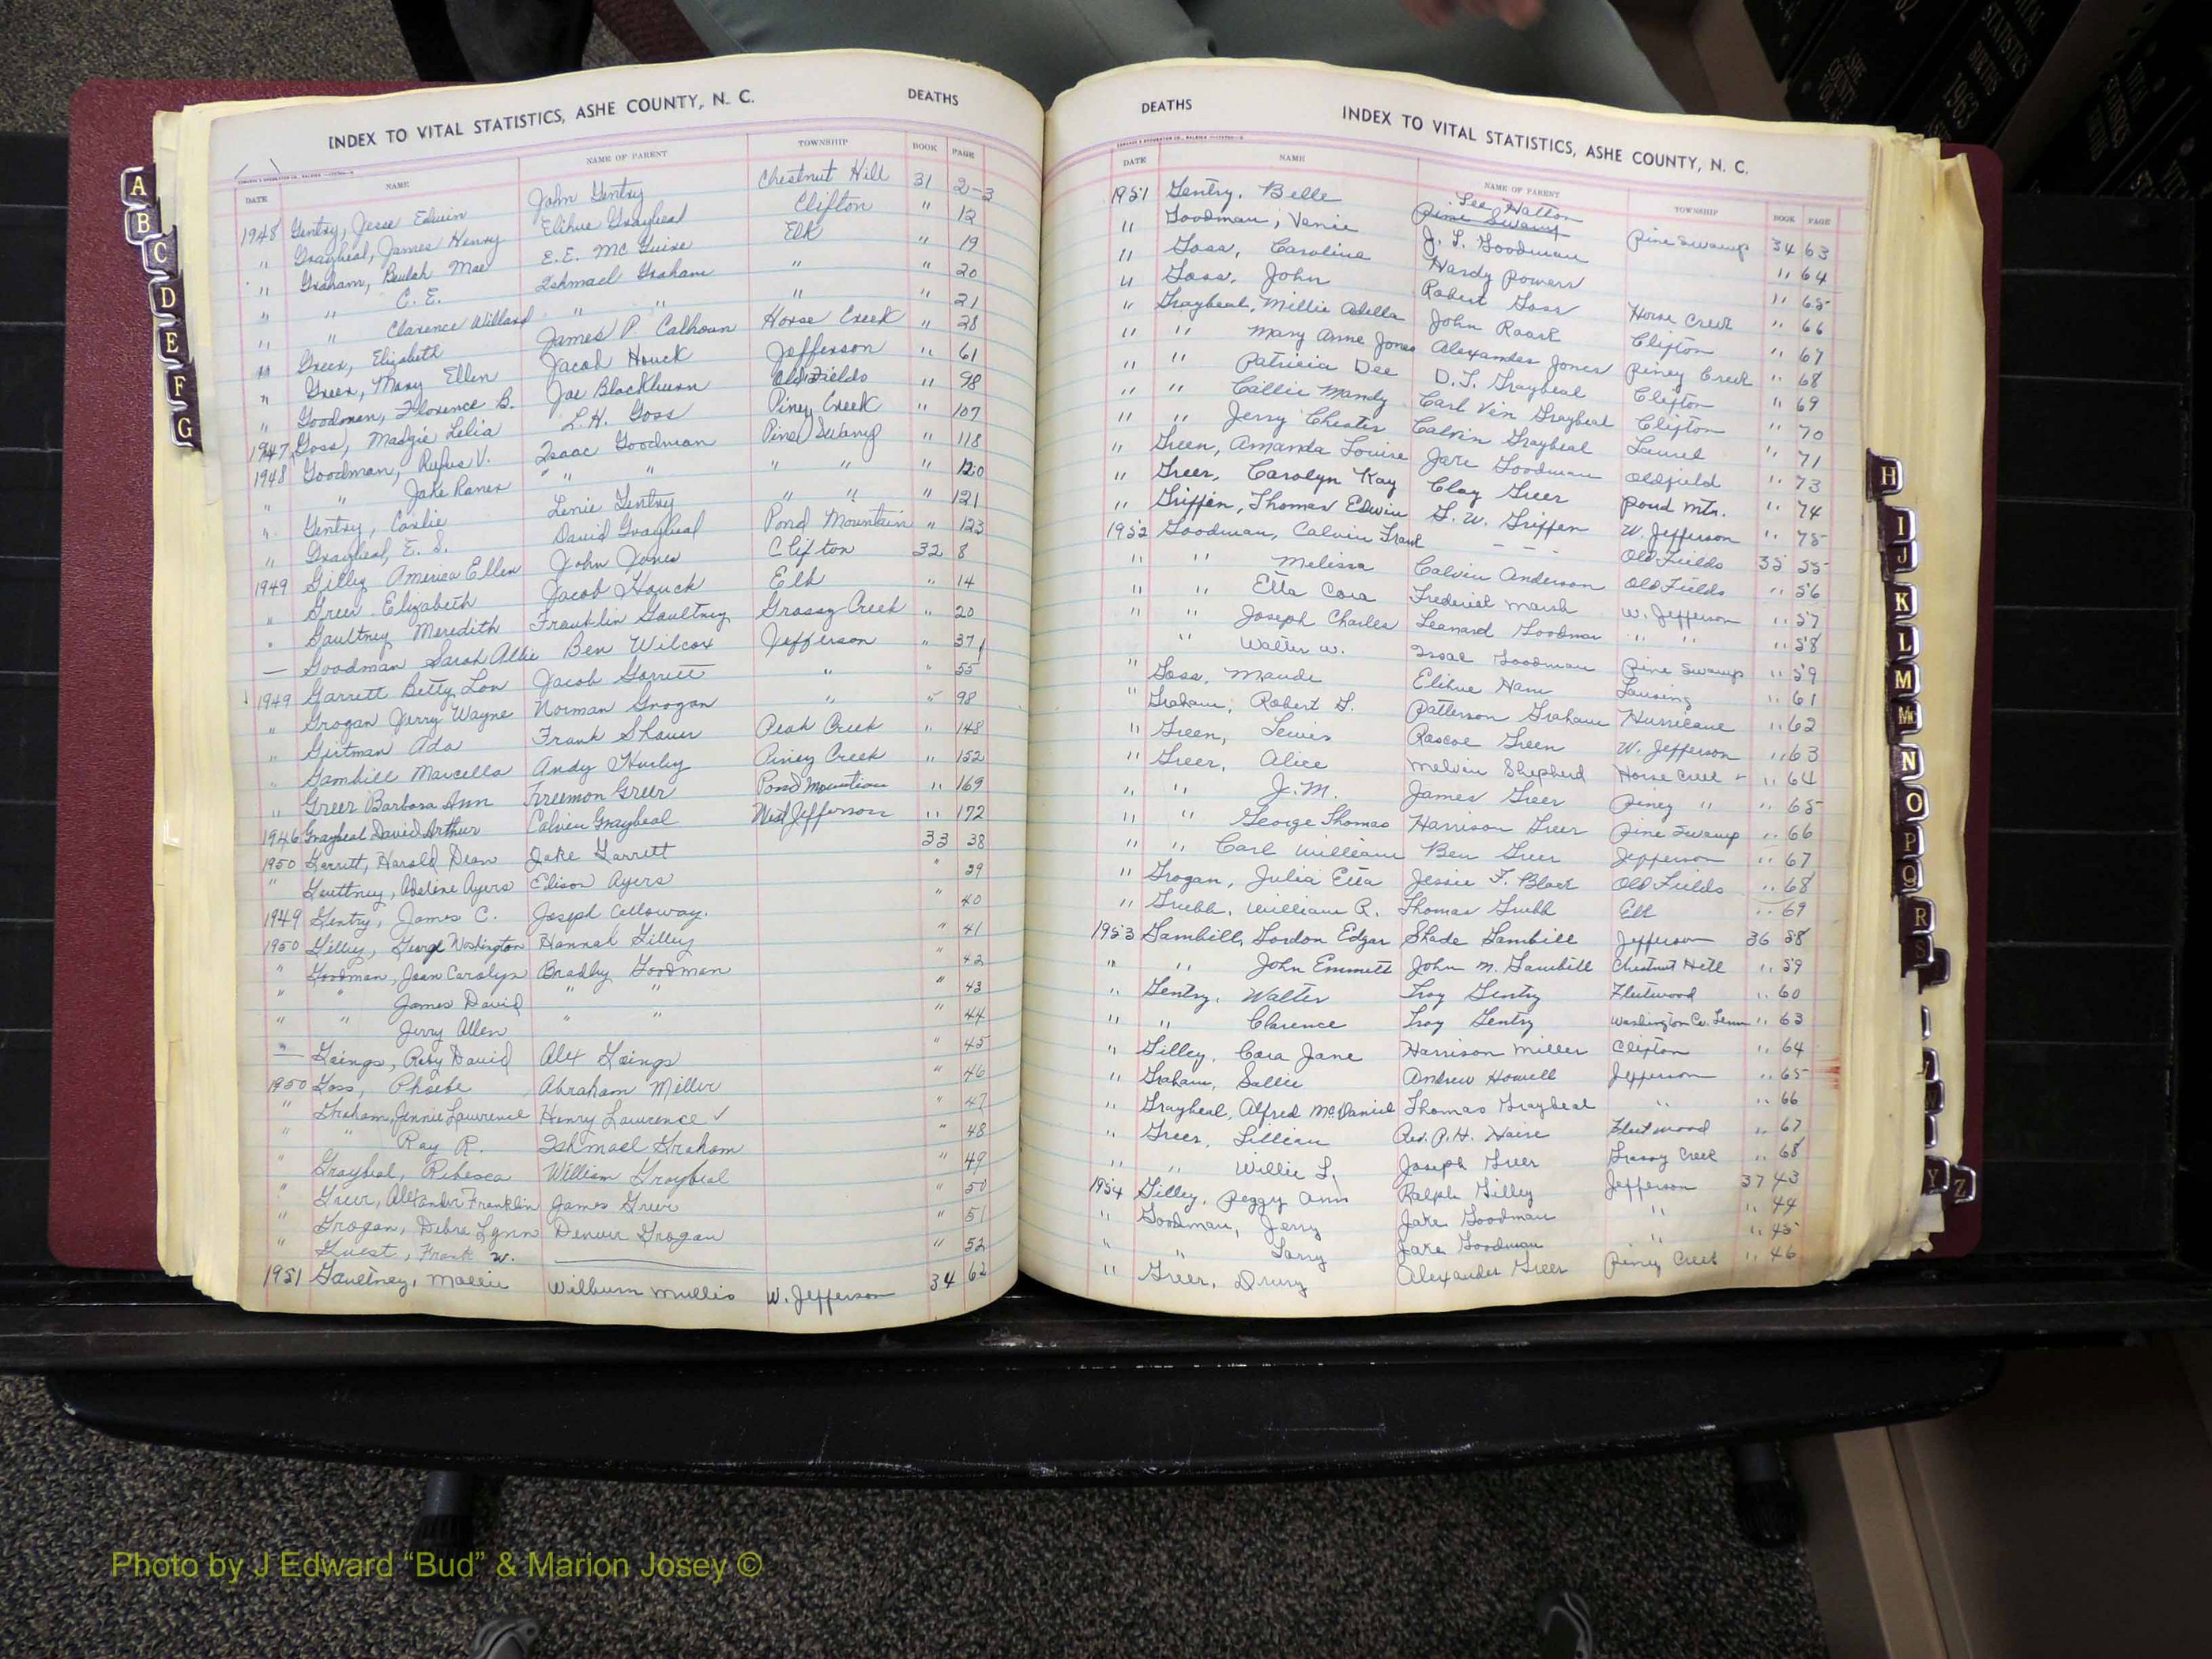 INDEX TO VITAL STATISTICS, ASHE COUNTY, N. C. DEATHS
DATE NAME NAME OF PARENT TOWNSHIP BOOK PAGE
1948 Gentry, Jesse Edwin John Gentry Chestnut Hill 31 2-3
" Graybeal, James Henry Elihue Graybeal Clifton " 12
" Graham, Beulah Mae E.E. McGuire Elk " 19
" " C. E. Ishmael Graham " " 20
" " Clarence Willard " " " " 21
" Greer, Elizabeth James P. Calhoun Horse Creek " 28
" Greer, Mary Ellen Jacob Houck Jefferson " 61
" Goodman, Florence B. Joe Blackburn Old Fields " 98
1947 Goss, Madgie Lelia L.H. Goss Piney Creek " 107
1948 Goodman, Rufus V. Isaac Goodman Pine Swamp " 118
" " Jake Raner " " " " " 120
" Gentry, Carlie Linie Gentry " " " 121
" Graybeal, E. S. David Graybeal Pond Mountain " 123
1949 Gilley America Ellen John Jones Clifton 32 8
" Greer Elizabeth Jacob Houck Elk " 14
" Gaultney Meredith Franklin Gaultney Grassy Creek " 20
— Goodman Sarah Allie Ben Wilcox Jefferson " 37
1949 Garrett Betty Lou Jacob Garrett " " 55
" Grogan Jerry Wayne Norman Grogan " " 98
" Girtman Ada Frank Shaver Peak Creek " 148
" Gambill Marcella Andy Hurley Piney Creek " 152
" Greer Barbara Ann Freemon Greer Pond Mountain " 169
1946 Graybeal David Arthur Calvin Graybeal West Jefferson " 172
1950 Garrett, Harold Dean Jake Garrett 33 38
" Gaultney, Adeline Ayers Edison Ayers " 39
1949 Gentry, James C. Joseph Calloway. " 40
1950 Gilley, George Washington Hannah Gilley " 41
" Goodman, Jean Carolyn Bradley Goodman " 42
" " James David " " " 43
" " Jerry Allen " " " 44
— Goings, Roby David Alex Goings " 45
1950 Goss, Phoebe Abraham Miller " 46
" Graham, Jennie Lawrence Henry Lawrence ✓ " 47
" " Ray R. Ishmael Graham " 48
" Graybeal, Rebecca William Graybeal " 49
" Greer, Alexander Franklin James Greer " 50
" Grogan, Debra Lynn Denver Grogan " 51
" Guest, Frank W. " 52
1951 Gaultney, Mollie Wilburn Mullis W. Jefferson 34 62
DEATHS INDEX TO VITAL STATISTICS, ASHE COUNTY, N. C.
DATE NAME NAME OF PARENT TOWNSHIP BOOK PAGE
1951 Gentry, Belle Lee Hatton Pine Swamp 34 63
" Goodman, Venie Pine Swamp J. L. Goodman " 64
" Goss, Caroline Hardy Powers " 65
" Goss, John Robert Goss Horse Creek " 66
" Graybeal, Millie Adella John Roark Clifton " 67
" " Mary Anne Jones Alexander Jones Piney Creek " 68
" " Patricia Dee D. T. Graybeal Clifton " 69
" " Callie Mandy Carl Vin Graybeal Clifton " 70
" " Jerry Chester Calvin Graybeal Laurel " 71
" Green, Amanda Louise Jake Goodman Oldfield " 73
" Greer, Carolyn Kay Clay Greer Pond Mtn. " 74
" Griffen, Thomas Edwin G. W. Griffen W. Jefferson " 75
1952 Goodman, Calvin Frank - - - Old Fields 35 55
" " Melissa Calvin Anderson Old Fields " 56
" " Etta Cora Frederick Marsh W. Jefferson " 57
" " Joseph Charles Leanard Goodman " " " 58
" Walter W. Isaac Goodman Pine Swamp " 59
" Goss, Maude Elihue Ham Lansing " 61
" Graham, Robert G. Patterson Graham Hurricane " 62
" Green, Lewis Roscoe Green W. Jefferson " 63
" Greer, Alice Melvin Shepherd Horse Creek " 64
" " J. M. James Greer Piney " " 65
" " George Thomas Harrison Greer Pine Swamp " 66
" " Carl William Ben Greer Jefferson " 67
" Grogan, Julia Etta Jessie F. Black Old Fields " 68
" Grubb, William R. Thomas Grubb Elk " 69
1953 Gambill, Gordon Edgar Shade Gambill Jefferson 36 58
" " John Emmett John M. Gambill Chestnut Hill " 59
" Gentry, Walter Troy Gentry Fleetwood " 60
" " Clarence Troy Gentry Washington Co. Tenn " 63
" Gilley, Cora Jane Harrison Miller Clifton " 64
" Graham, Sallie Andrew Howell Jefferson " 65
" Graybeal, Alfred McDaniel Thomas Graybeal " " 66
" Greer, Lillian Rev. P. H. Haire Fleetwood " 67
" " Willie L. Joseph Greer Grassy Creek " 68
1954 Gilley, Peggy Ann Ralph Gilley Jefferson 37 43
" Goodman, Jerry Jake Goodman " " 44
" " Larry Jake Goodman " " 45
" Greer, Drury Alexander Greer Piney Creek " 46
A
B
C
D
E
F
G
H
I
J
K
L
M
Mc
N
O
P
Q
R
Y Z
VITAL STATISTICS BIRTHS 1963
ASHE COUNTY
Photo by J Edward “Bud” & Marion Josey ©